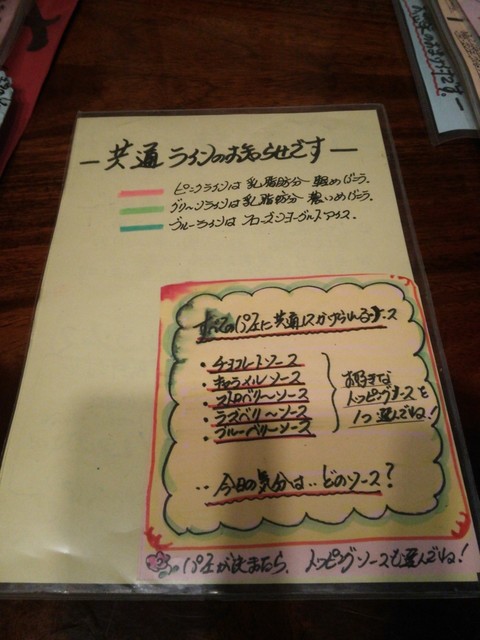 ー共通ラインのお知らせですー
ピンクラインは乳脂肪分 軽めばーう。
グリーンラインは乳脂肪分 濃いめばーう。
ブルーラインは フローズンヨーグルトアイス。
すべてのパフェに共通してかけられるソース
・チョコレートソース
・キャラメルソース
・ストロベリーソース
・ラズベリーソース
・ブルーベリーソース
お好きな
トッピングソースを
1つ選んでね!
‥今日の気分は‥どのソース?
パフェが決まったら、トッピングソースも選んでね!